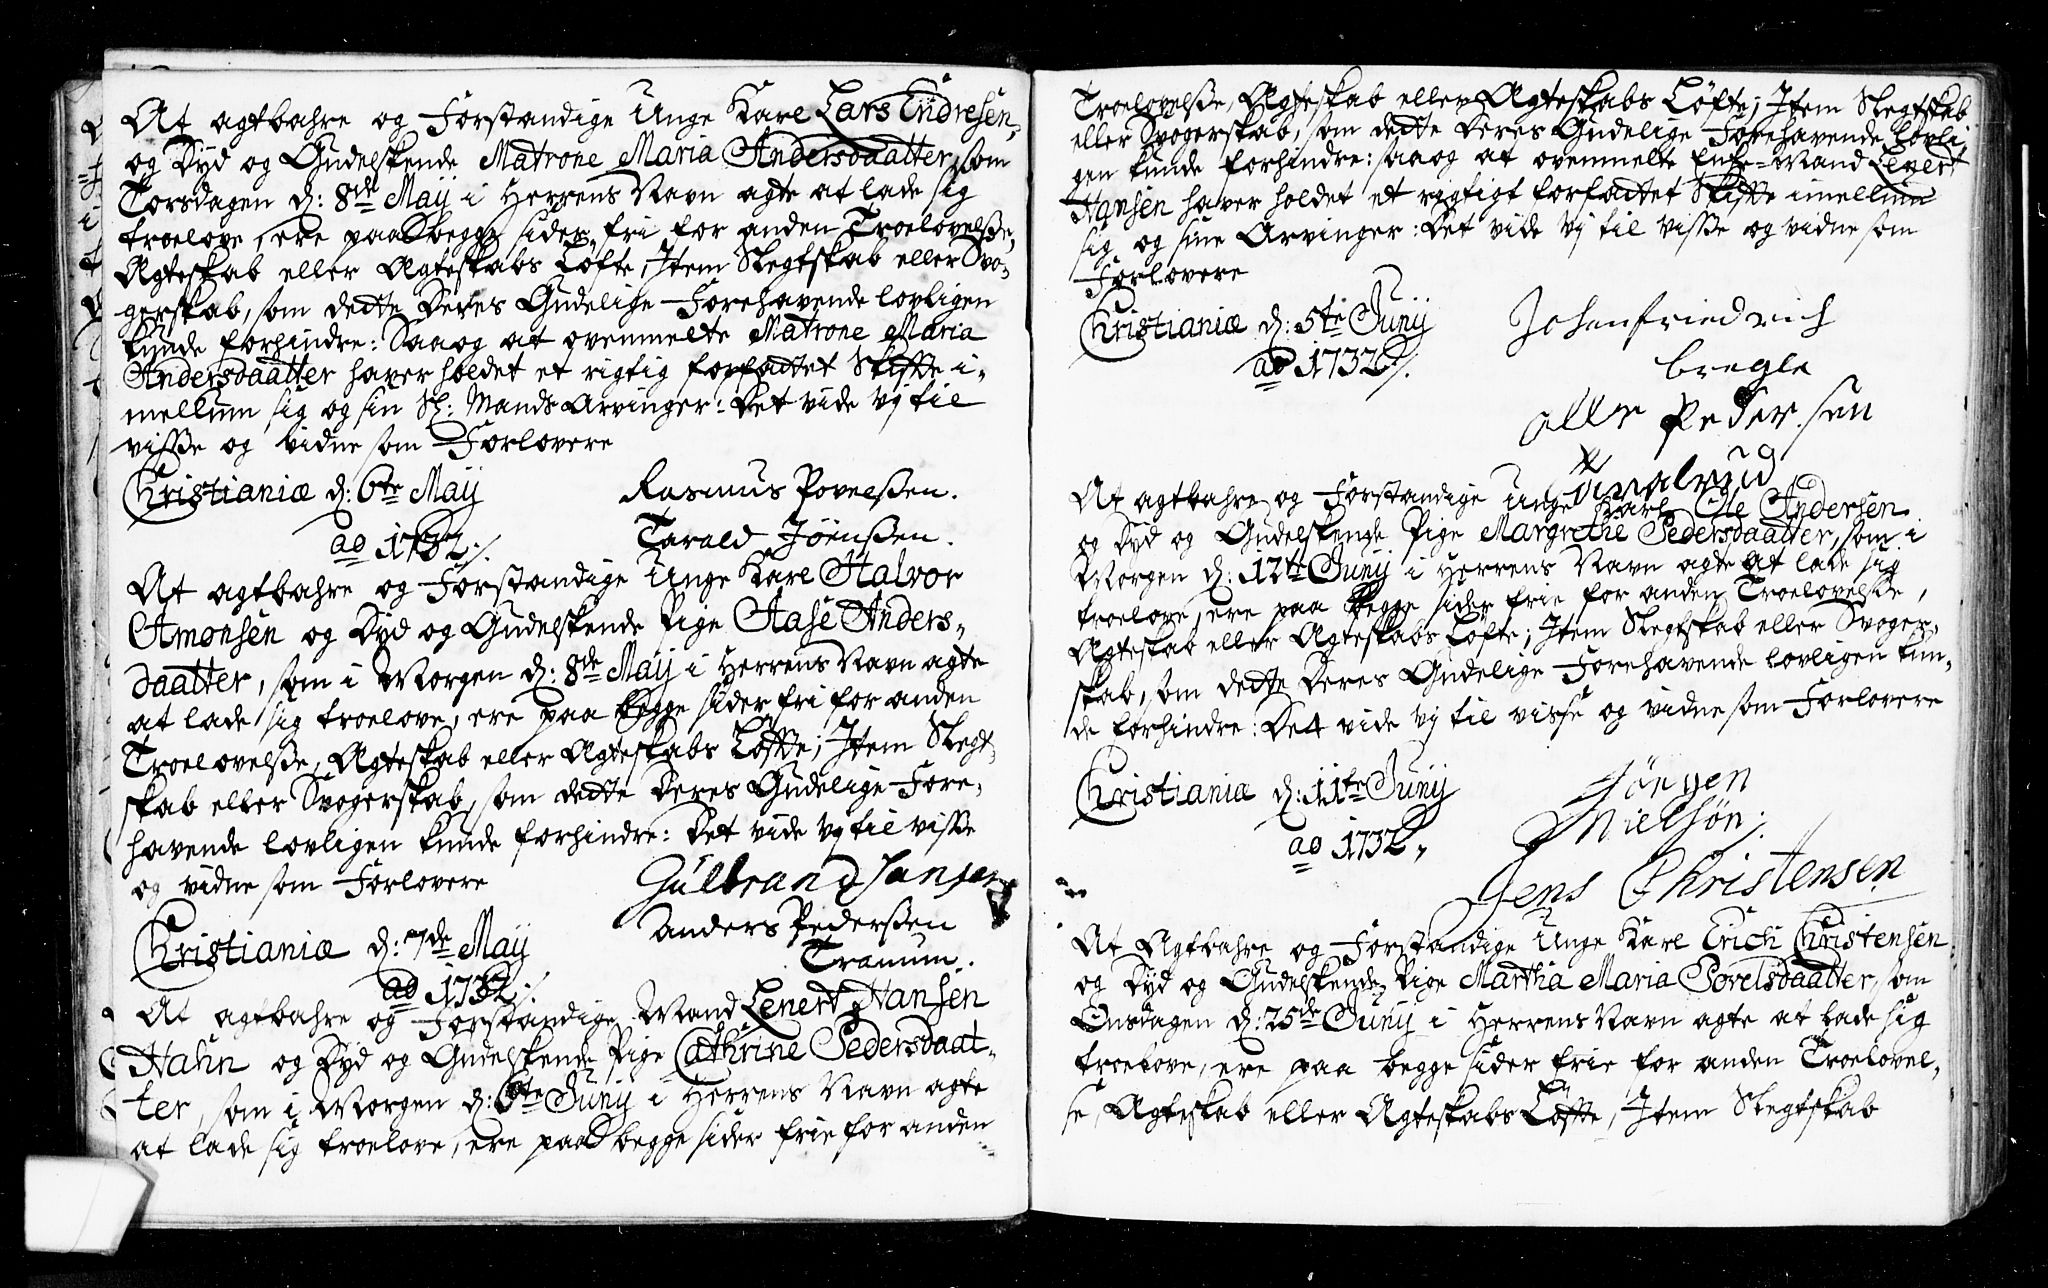 At agtbahre og Forstandige Unge Karl Lars Endresen,
og Dyd og Gudelskende Matrone Maria Andersdaatter, som
Torsdagen d: 8de Maij i Herrens Navn agte at lade sig
troelove, ere paa begge sider fri for anden Troelovelsse,
Agteskab eller Agteskabs Løfte, Item Slegtskab eller Svo-
gerskab, som dette Deres Gudelige Forehavende lovligen
kunde forhindre: Saa og at ovenmelte Matrone Maria
Andersdaatter haver holdet et rigtig forfattet Skifte i-
mellum sig og sin Sl: Mands Arvinger: Det vide Vj til
visse og vidne som Forlovere
Christianiæ d: 6te Maij
ao 1732 ./.
Rasmus Povelssen.
Tarald Jöenssen.
At agtbahre og Forstandige Unge Karl Halvor
Amonsen og Dyd og Gudelskende Pige Aase Anders-
daatter, som i Morgen d: 8de Maij i Herrens Navn agte
at lade sig troelove, ere paa begge sider fri for anden
Troelovelsse, Agteskab eller Agteskabs Løfte; Item Slegt-
skab eller Svogerskab, som dette Deres Gudelige Fore-
havende lovligen kunde forhindre: Det vide Vj til visse
og vidne som Forlovere
Gulbrand Hansen
Anders Pederssen
Tranum.
Christianiæ d: 7de Maij
ao 1732 ./.
At agtbahre og Forstandige Mand Lenert Hansen
Hahn og Dyd og Gudelskende Pige Cathrine Pedersdaat-
ter, som i Morgen d: 6te Junij i Herrens Navn agte
at lade sig troelove, ere paa begge sider frie for anden
Troelovelsse, Agteskab eller Agteskabs Løfte; Item Slegtskab
eller Svogerskab, som dette Deres Gudelige Forehavende lovli-
gen kunde forhindre: saa og at ovenmelte Enke-Mand Lenert
Hansen haver holdet et rigtigt forfattet Skifte imellum
sig og sine Arvinger: Det vide Vj til visse og vidne som
Forlovere
Christianiæ d: 5te Junij
ao 1732 ./.
Johan friedrich
bregle
Peder sen
At agtbahre og Forstandige Unge Karl Ole Andersen
og Dyd og Gudelskende Pige Margrethe Pedersdaatter, som i
Morgen d: 12te Junij i Herrens Navn agte at lade sig
troelove, ere paa begge sider frie for anden Troelovelsse,
Agteskab eller Agteskabs Løfte; Item Slegtskab eller Svoger-
skab, som dette Deres Gudelige Forehavende lovligen kun-
de forhindre: Det vide Vj til visse og vidne som Forlovere
Christianiæ d: 11te Junij
ao 1732,
Jörgen
Nielsön:
Jens Christensen
At Agtbahre og Forstandige Unge Karl Erich Christensen
og Dyd og Gudelskende Pige Martha Maria Povelsdaatter, som
Onsdagen d: 25de Junij i Herrens Navn agte at lade sig
troelove, ere paa begge sider frie for anden Troelovel-
se, Agteskab eller Agteskabs Løfte, Item Slegtskab